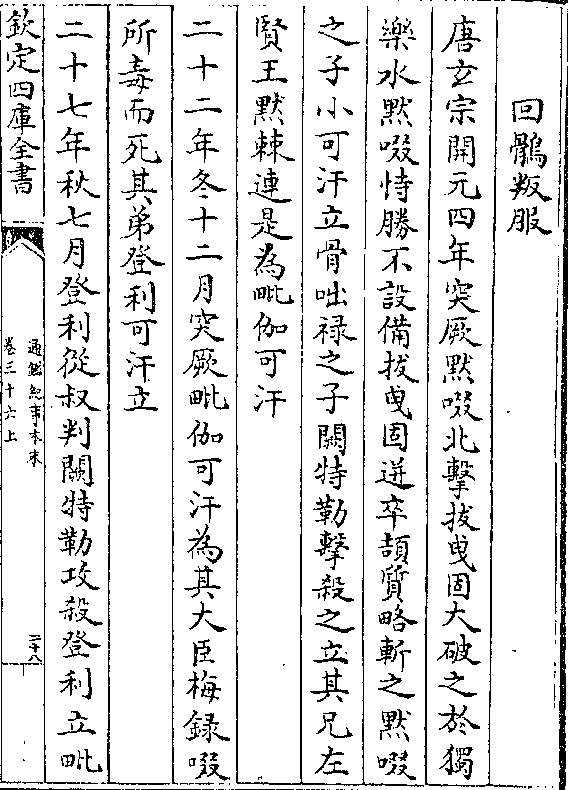 回鶻叛服
唐玄宗開元四年突厥默啜北擊拔曳固大破之於獨
樂水默啜恃勝不設備拔曳固迸卒頡質略斬之默啜
之子小可汗立骨咄禄之子闕特勒擊殺之立其兄左
賢王默棘連是為毗伽可汗
二十二年冬十二月突厥毗伽可汗為其大臣梅録啜
所毒而死其弟登利可汗立
二十七年秋七月登利從叔判闕特勒攻殺登利立毗
欽定四庫全書
通鑑紀事本末
卷三十六上
二十八